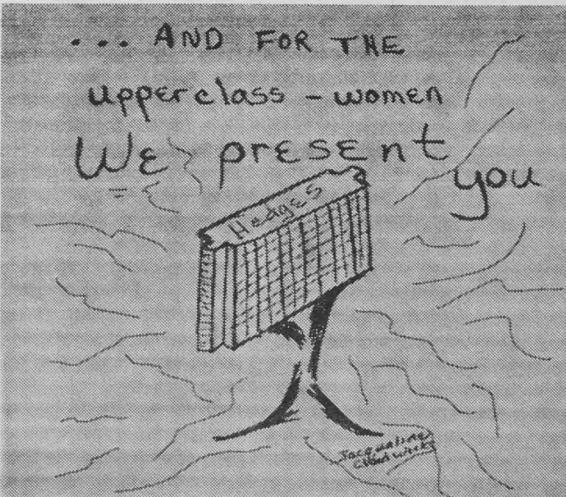 ... AND FOR THE
upperclass - women
We present
you
Hedges
Jacqueline